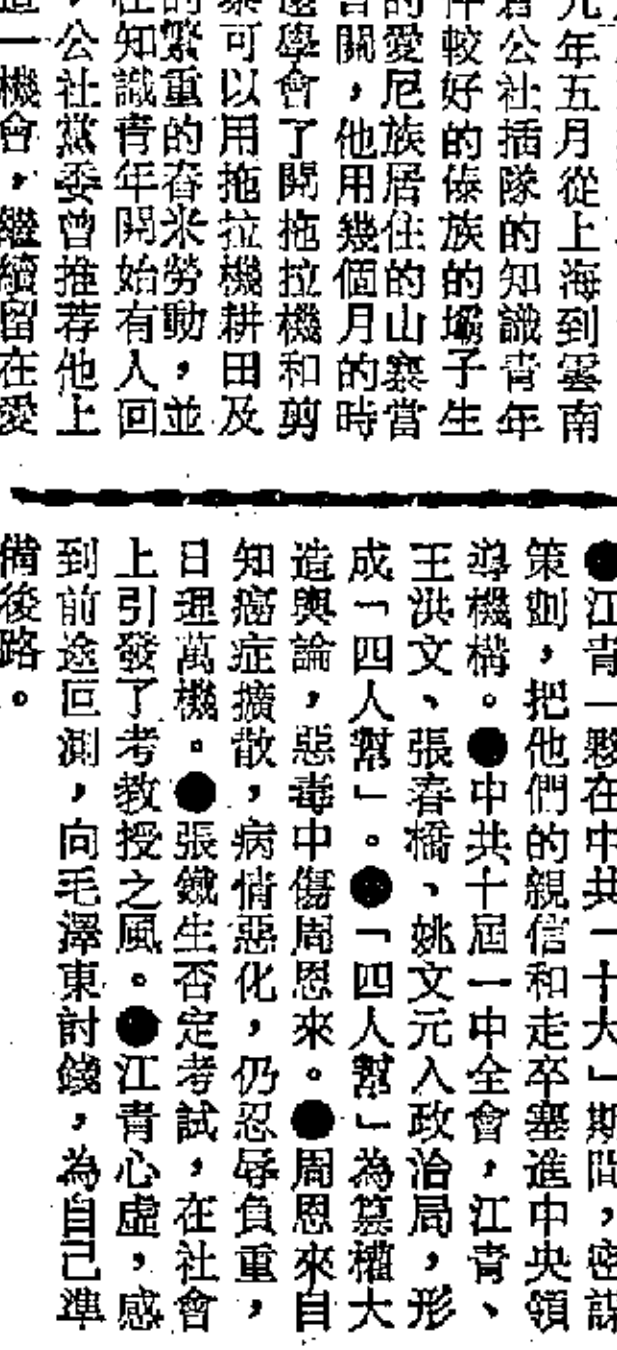 元年五月從上海到雲南
公社插隊的知識青年
件較好的傣族的壩子生
的愛尼族居住的山寨當
關，他用幾個月的時
學會了開拖拉機和剪
可以用拖拉機耕田及
的繁重的舂米勞動，並
在知識青年開始有人回
，公社黨委曾推荐他上
一機會，繼續留在愛
●江青一夥在中共「十大」期間，密謀
策劃，把他們的親信和走卒塞進中央領
導機構。●中共十屆一中全會，江青、
王洪文、張春橋、姚文元入政治局，形
成「四人幫」。●「四人幫」為篡權大
造輿論，惡毒中傷周恩來。●周恩來自
知癌症擴散，病情惡化，仍忍辱負重，
日理萬機。●張鐵生否定考試，在社會
上引發了考教授之風。●江青心虛，感
到前途叵測，向毛澤東討錢，為自己準
備後路。